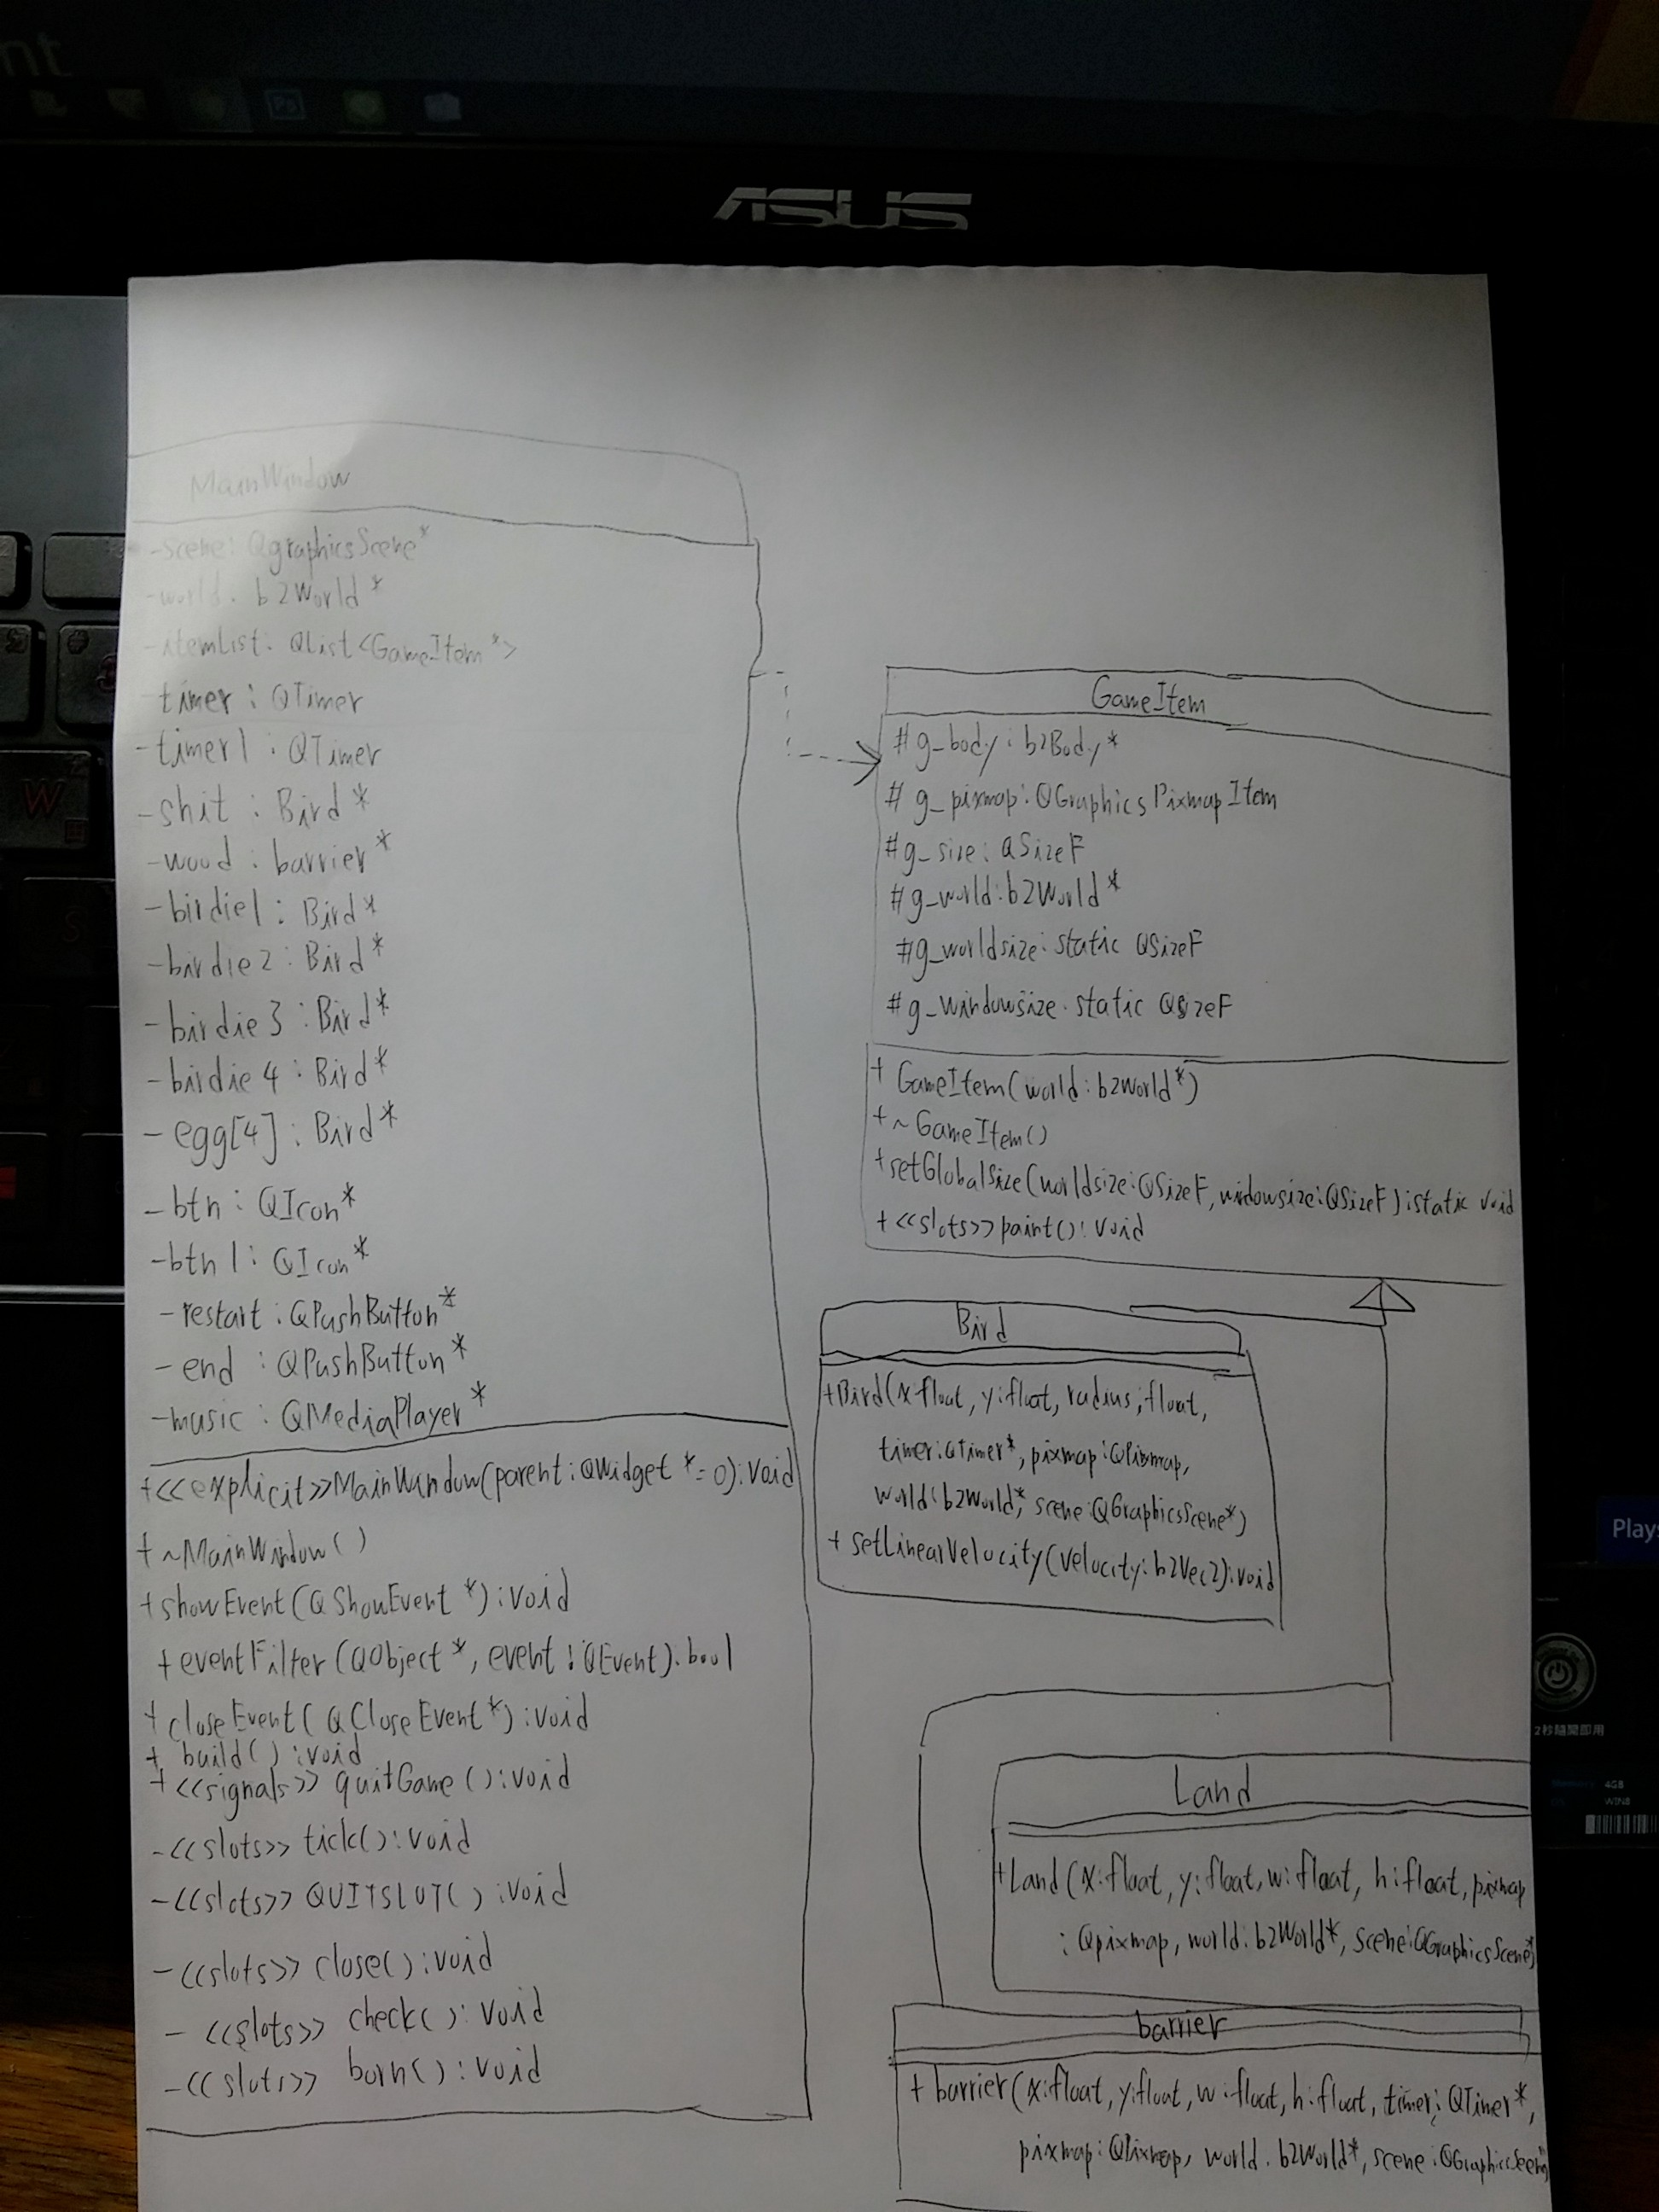 nt
Ps
ASUS
MainWindow
-scene: QgraphicsScene*
-world: b2World*
-itemList: QList<GameItem*>
-timer: QTimer
-timer1: QTimer
-shit: Bird*
-wood: barrier*
-birdie1: Bird*
-birdie2: Bird*
-birdie3: Bird*
-birdie4: Bird*
-egg[4]: Bird*
-btn: QIcon*
-btn1: QIcon*
-restart: QPushButton*
-end: QPushButton*
-music: QMediaPlayer*
+<<explicit>>MainWindow(parent: QWidget *=0): void
+~MainWindow()
+showEvent(QShowEvent *): void
+eventFilter(QObject *, event: QEvent): bool
+closeEvent(QCloseEvent*): void
+build(): void
+<<signals>> quitGame(): void
-<<slots>> tick(): void
-<<slots>> QUITSLOT(): void
-<<slots>> close(): void
-<<slots>> check(): void
-<<slots>> born(): void
GameItem
#g_body: b2Body*
#g_pixmap: QGraphicsPixmapItem
#g_size: QSizeF
#g_world: b2World*
#g_worldsize: static QSizeF
#g_windowsize: static QSizeF
+GameItem(world: b2World*)
+~GameItem()
+setGlobalSize(worldsize: QSizeF, widowsize: QSizeF): static void
+<<slots>>paint(): void
Bird
+Bird(x: float, y: float, radius: float,
timer: QTimer*, pixmap: QPixmap,
world: b2World*, scene: QGraphicsScene*)
+setLinearVelocity(velocity: b2Vec2): void
Land
+Land(x: float, y: float, w: float, h: float, pixmap
: Qpixmap, world: b2World*, scene: QGraphicsScene*)
barrier
+barrier(x: float, y: float, w: float, h: float, timer: QTimer*,
pixmap: QPixmap, world: b2World*, scene: QGraphicsScene
W
S
Plays
2秒隨開即用
Memory: 4GB
OS: WIN8